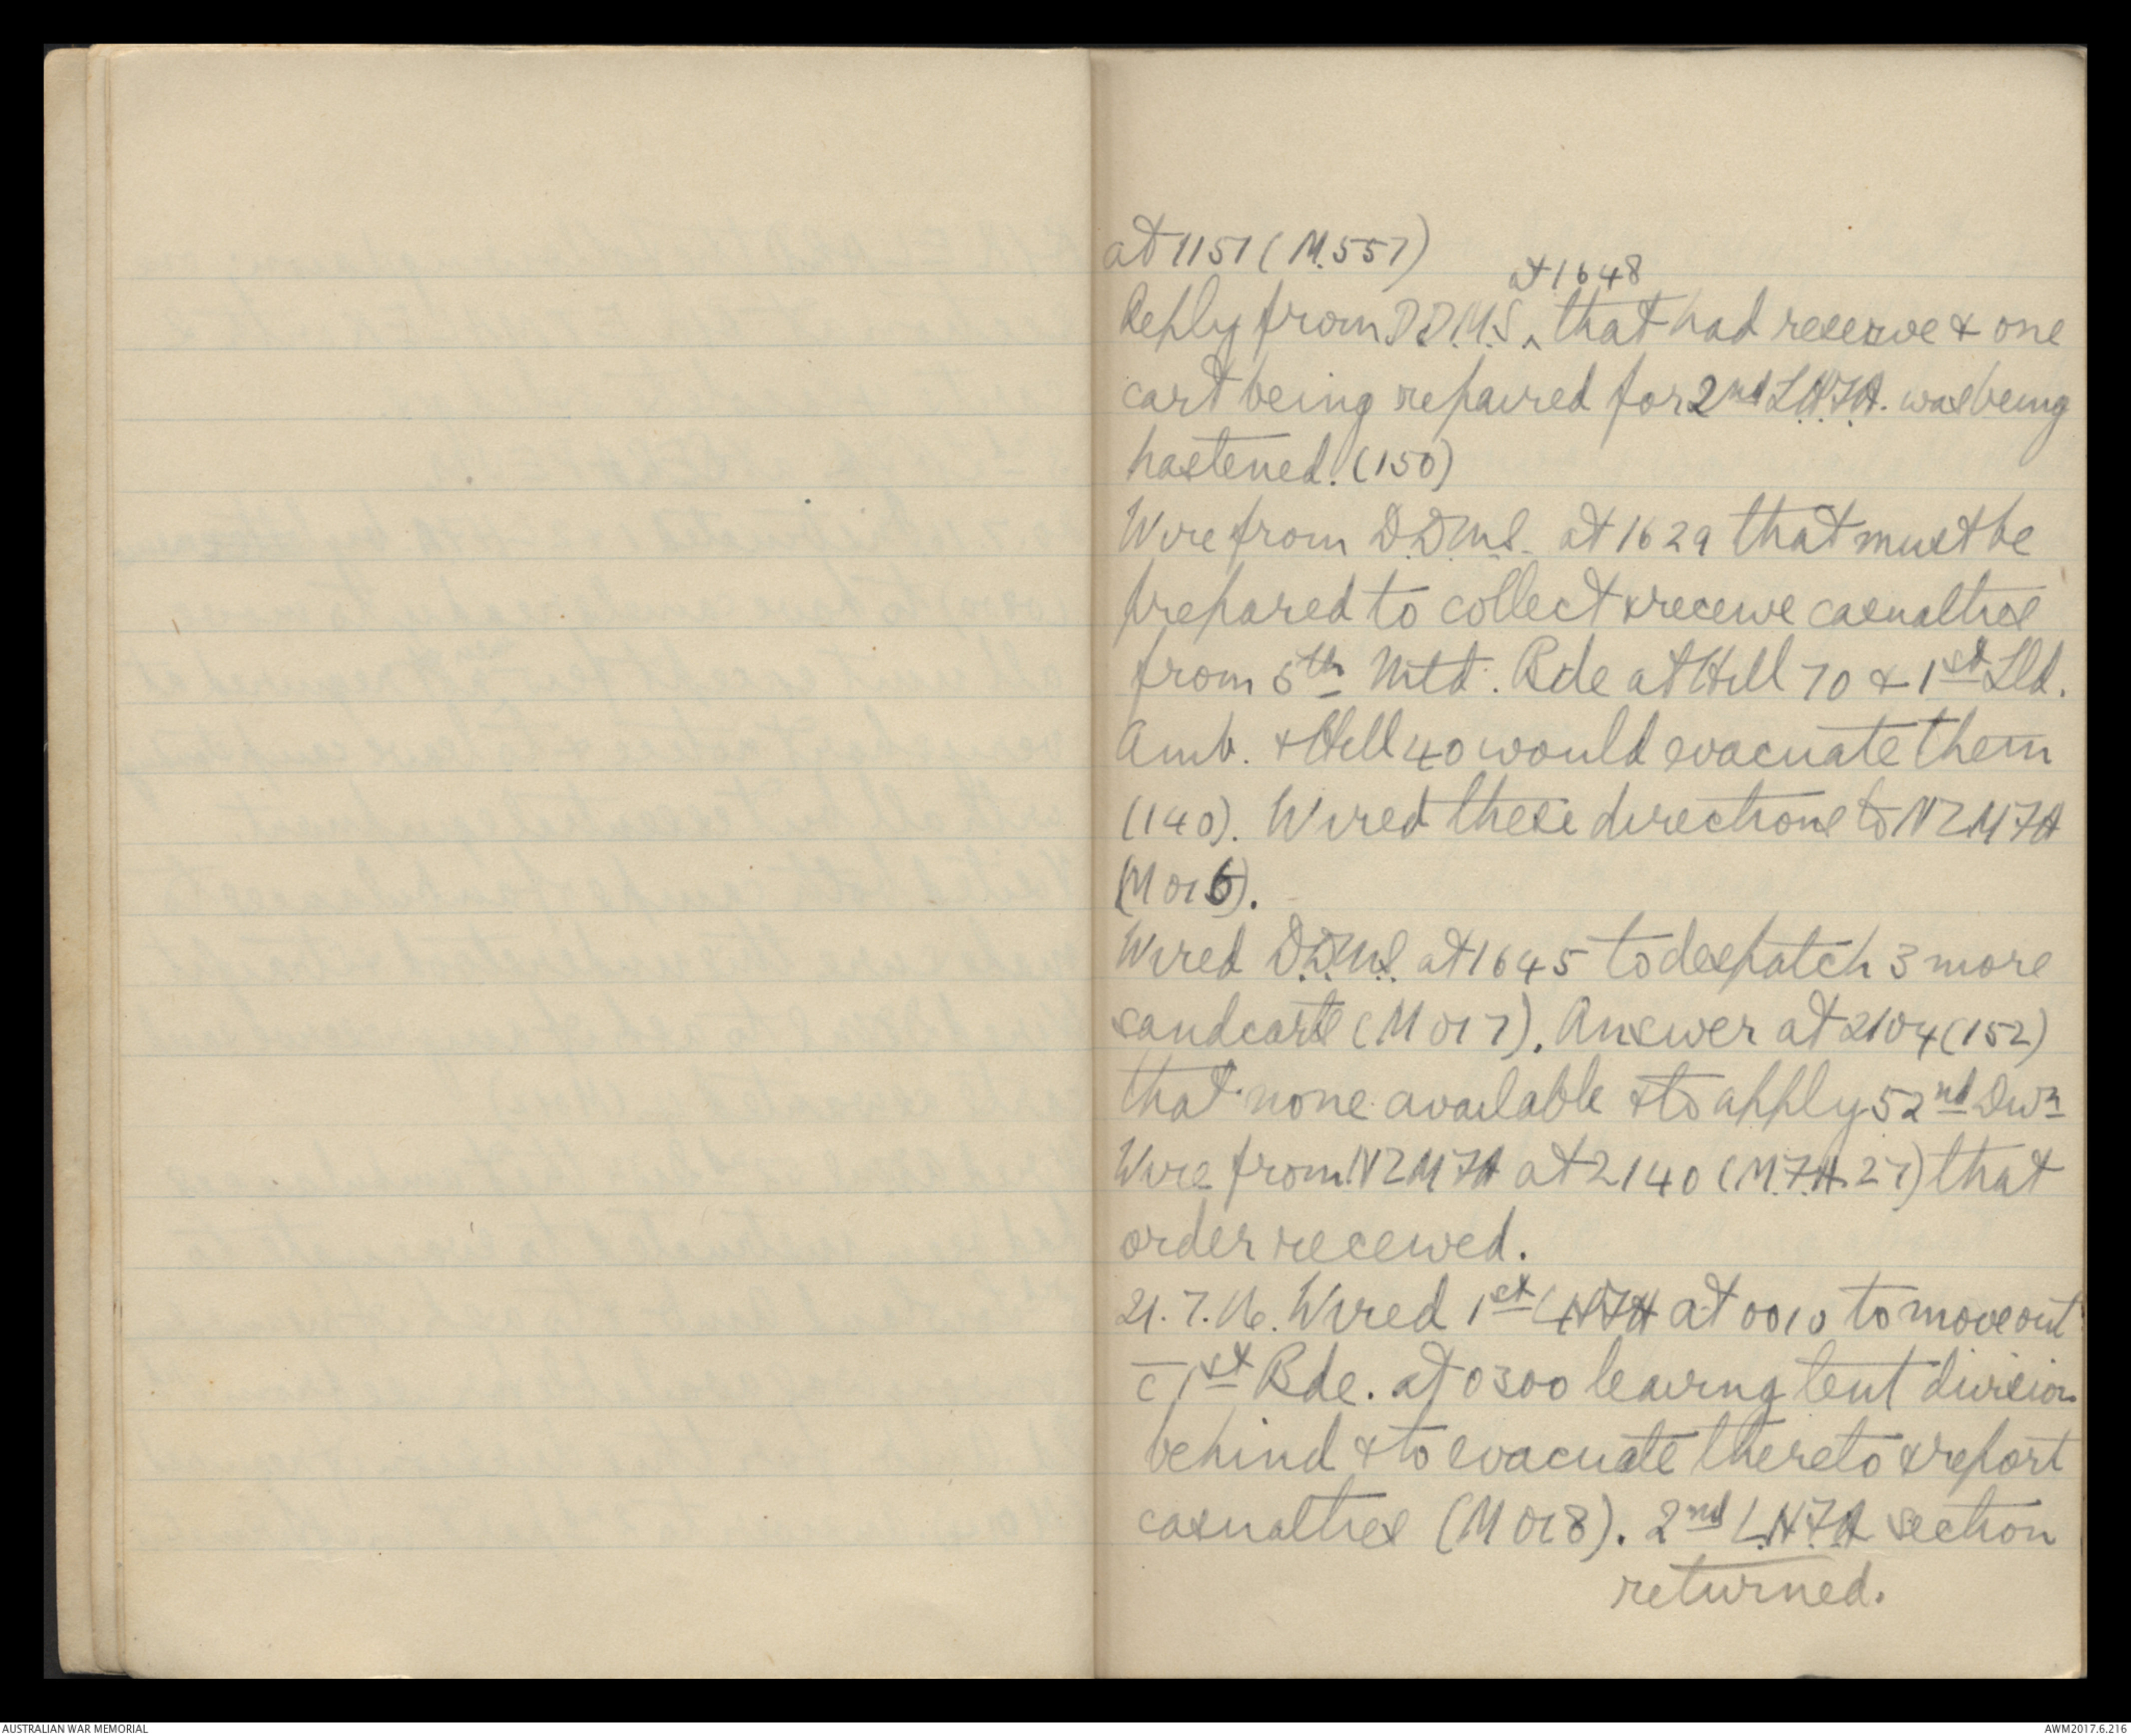 at 1151 (M.557)
at 1648
Reply from D.D.M.S. ^ that had reserve & one
cart being repaired for 2nd L.H.F.A. was being
hastened. (150)
Wire from D.D.M.S. at 1629 that must be
prepared to collect & receive casualties
from 5th Mtd. Bde at Hill 70 & 1st Lld.
Amb. & Hill 40 would evacuate them
(140). Wired these directions to NZMFA
(M016).
Wired D.D.M.S. at 1645 to despatch 3 more
sandcarts (M017). Answer at 2104 (152)
that none available & to apply 52nd Divn
Wire from NZMFA at 2140 (M.F.A.27) that
order received.
21.7.16. Wired 1st LHFA at 0010 to move out
c̄ 1st Bde. at 0300 leaving tent division
behind & to evacuate thereto & report
casualties (M018). 2nd L.H.F.A section
returned.
AUSTRALIAN WAR MEMORIAL
AWM2017.6.216